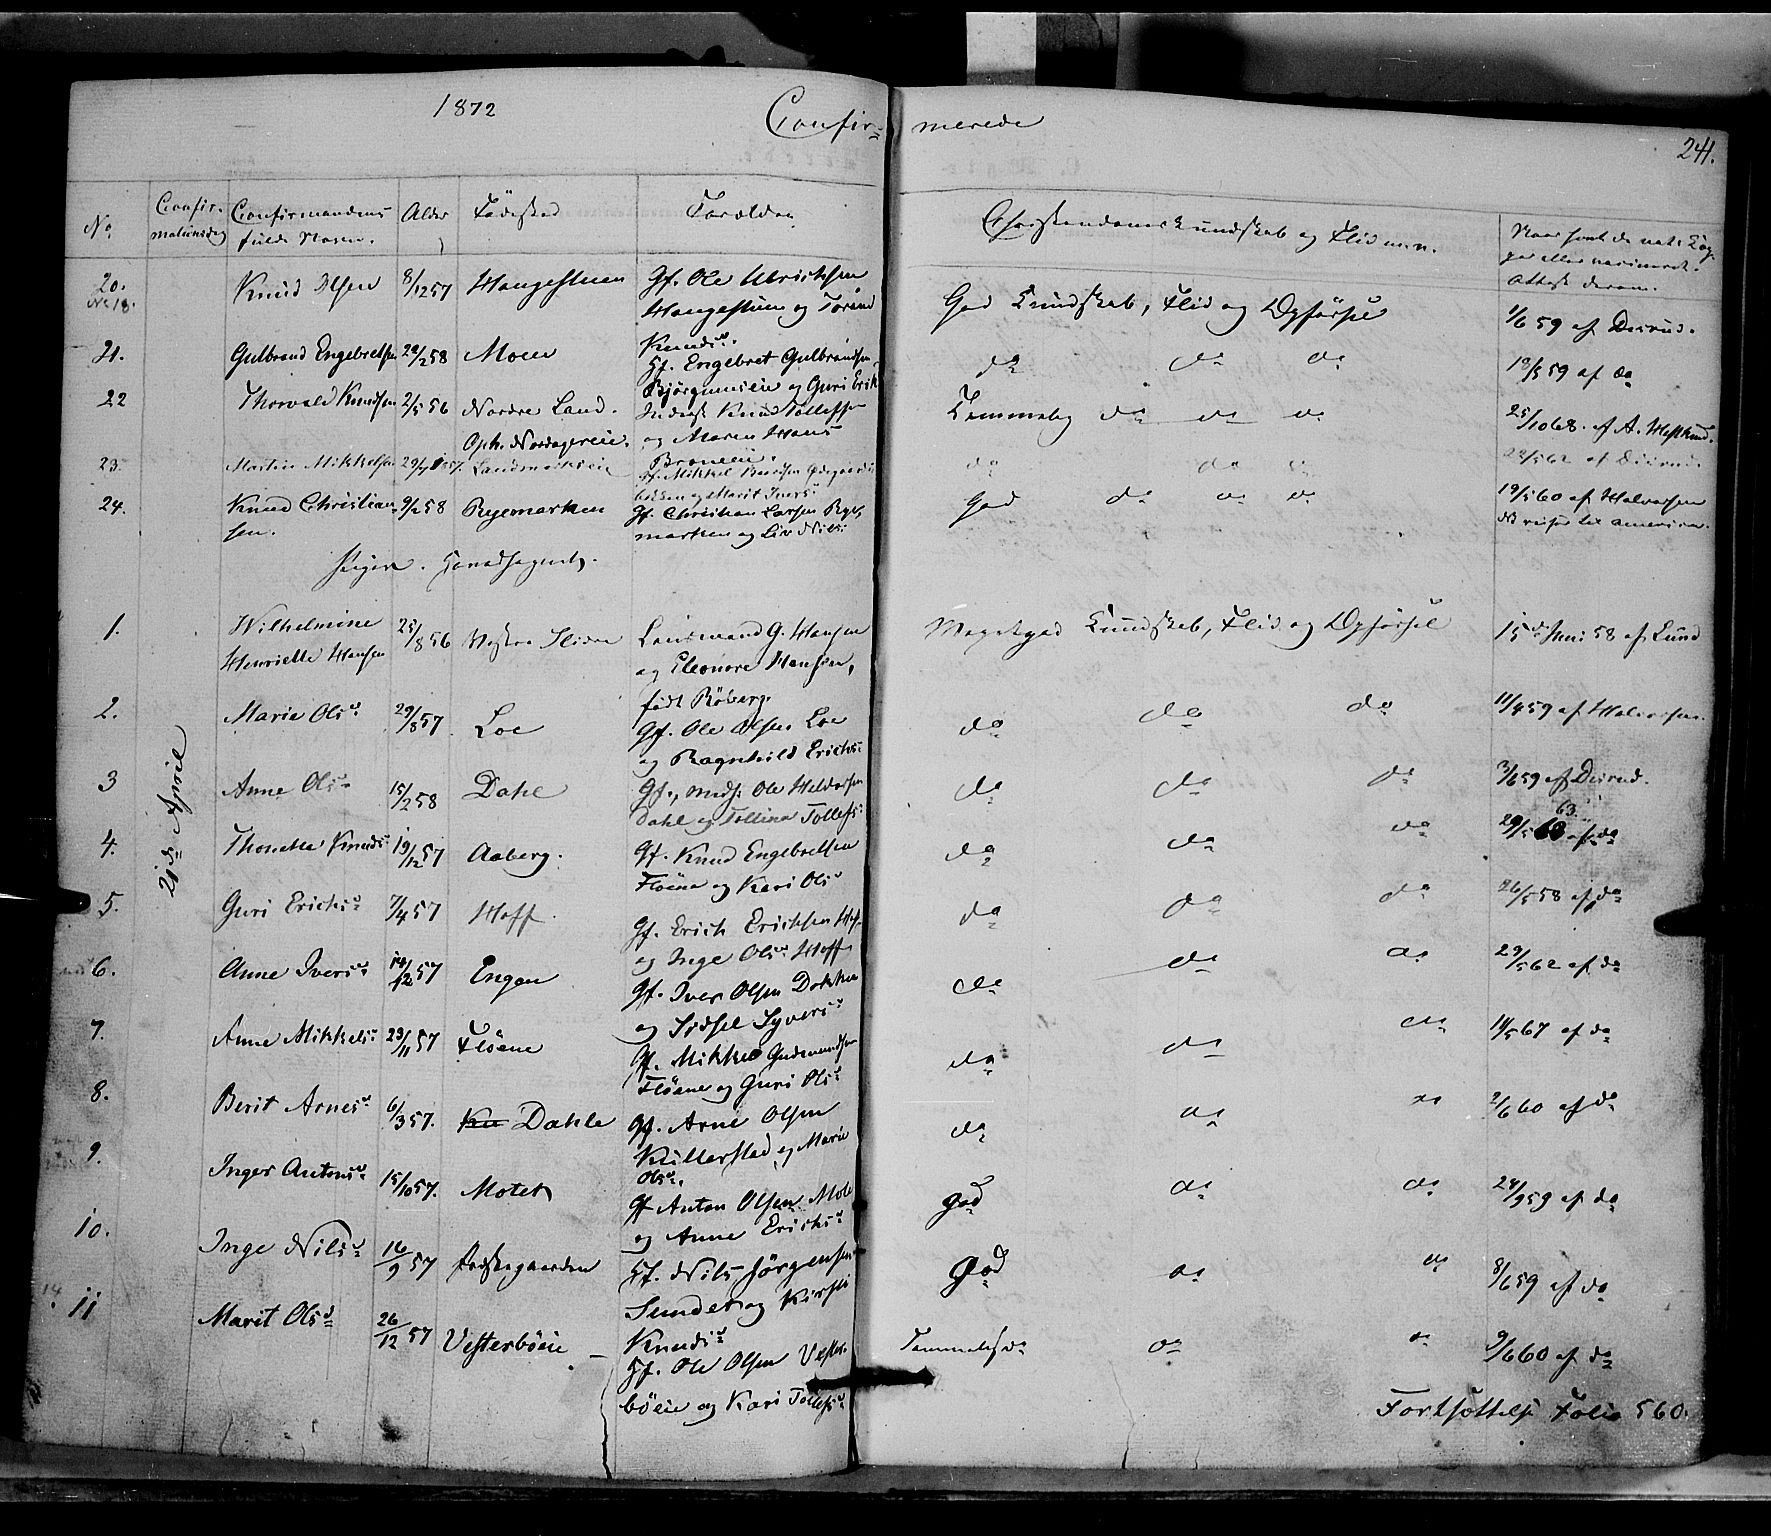 1872 Confir- merede 241.
No. Confir- Confirmandens Alder Fødested Forældre Christendomskundskab og Flid m.m. Naar havt de nat. Kop-
mationsdag fulde Navn. per eller vaccineret.
Attest derom.
20. Knud Olsen 8/12 57 Haugestuen Gf. Ole Ulrichsen God Kundskab, Flid og Opførsel 1/6 59 af Deirud.
No 18. Haugestuen og
Knudsd.
21. Gulbrand Engebretsen 2/58 Moen Gf. Engebret Gulbrandsen do do do 10/5 59 af do
og Guri Erik
22 Thorvald Knudsen 2/5 56 Nordre Land. Inderst Knud Tollefsen Temmelig do do do 25/10 68. af A.
Oph. og Maren Hans
23. Martin Mikkelsen 29/ 57. Gf. Mikkel do do do 62 af Deirud.
og Marit Ivers
24. Knud Christian- 9/2 58 Ryemarken Gf. Christian Larsen Rye- God do do do 19/5 60 af Halvorsen
sen. marken og Liv Nilsd. reiser til America.
Piger. Hovedsognet.
21de April
1. Wilhelmine 25/8 56 Vestre Slidre Lensmand G. Hansen Megetgod Kundskab, Flid og Opførsel 15de Juni 58 af Lund
Henriette Hansen og Eleonore Hansen,
født Röberg.
2. Marie Olsd. 29/8 57 Loe Gf. Ole Olsen Loe do do do 11/4 59 af Halvorsen.
og Ragnhild Erichsd.
3 Anne Olsd. 15/2 58 Dahl Gf., Ole do do do 3/6 59 af Deirud.
Dahl og Tolline Tollefsd.
4. Thonette Knudsd. 19/12 57 Aaberg. Gf. Knud Engebretsen do do do 29/5 63 af do
Fløene og Kari Olsd
5. Guri Erichsd 7/4 57 Hoff Gf. Erich Erichsen Hof do do do 26/5 58 af do
og Inge Olsd Hoff
6. Anne Iversd 14/12 57 Engen Gf. Iver Olsen Dokken do do do 29/5 62 af do
og Sidsel Syversd
7. Anne Mikkelsd 23/11 57 Fløene Gf. Mikkel Gudmundsen do do do 14/5 67 af do
Fløene og Guri Olsd
8. Berit Arnesd 6/3 57. Dahle Gf. Arne Olsen do do do 2/6 60 af do
Killerstad og Marie
Olsd.
9. Inger Antonsd 15/10 57. Motets Gf Anton Olsen Mote god do do 24/9 59 af do
og Anne Erichsd
10. Inge Nilsd 16/9 57 Præstegaarden Gf. Nils Jørgensen god do do 8/6 59 af do
Sundet og Kirsti
Knudsd
11 Marit Olsd 26/12 57 Vesterbøeie Gf. Ole Olsen Vester- Temmeligdo do do 9/6 60 af do
bøeie og Kari Tollefsd
Fortsættelse Folio 560.